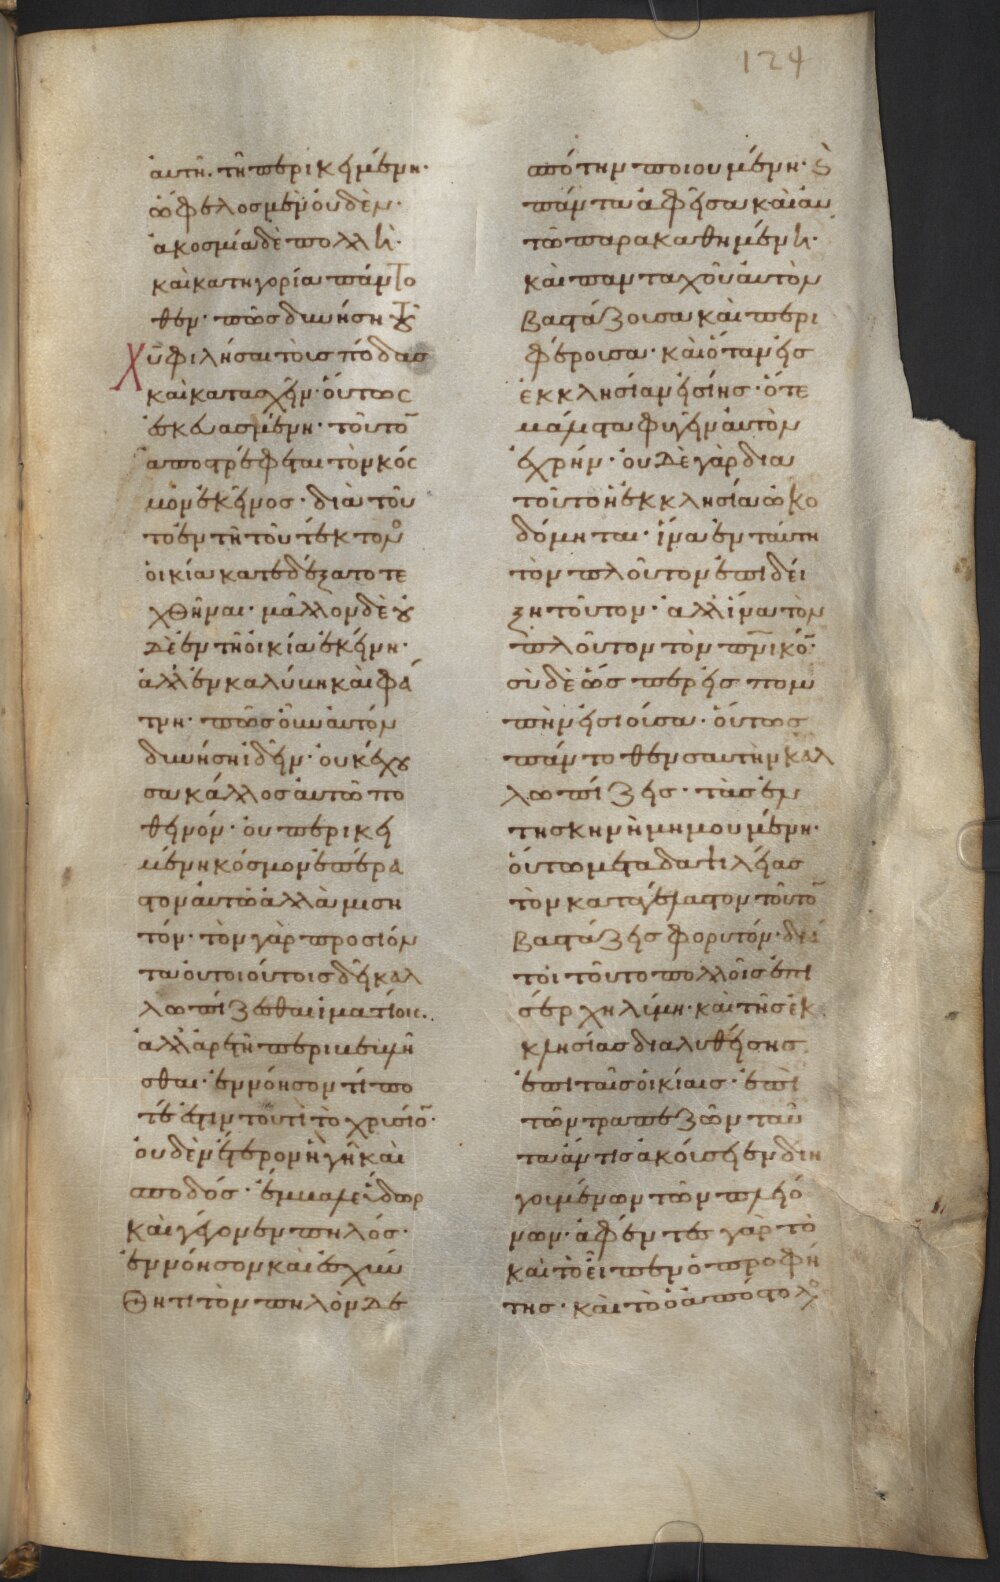 αυτη. τῆ περικειμένη·
ὄφελος μὲν οὐδὲν·
ἀκοσμία δὲ πολλὴ·
καὶ κατηγορία πάντο
θεν· πῶς δυνήση τοῦ
χῦ φιλῆσαι τοὺς πόδας
καὶ κατασχεῖν· οὕτως
ἐσκευασμένη· τοῦτο̅
ἀποστρέφεται τὸν κόσ
μον ἐκεῖνος· διὰ τοῦ
το ἐν τῆ τοῦ τέκτονο
οἰκία κατεδέξατο τε
χθῆναι· μᾶλλον δὲ οὐ
δὲ ἐν τῆ οἰκία ἐκείνη·
ἀλλ' ἐν καλύβη καὶ φά
τνη· πῶς οὖν αὐτόν
δυνήση ἰδεῖν· οὐκ ἔχου
σα κάλλος αὐτῶ πο
θεινόν· οὐ περικει
μένη κόσμον ἐπέρα
στον αὐτῶ ἀλλὰ μιση
τόν· τὸν γὰρ προσιόν
τα οὐ τοιούτοις δεῖ καλ
λωπίζεσθαι ἱματίοις.
ἀλλ' ἀρετῆ περιβεβλῆ
σθαι· ἐννόησον τί πο
τέ ἐστιν τουτὶ τὸ χρυσίο̅·
οὐδὲν ἕτερον ἢ γῆ καὶ
σποδός· ἔμβαλε ὕδωρ
καὶ γέγονεν πηλός·
ἐννόησον καὶ αἰσχύν
θητι τὸν πηλὸν δε
σπότην ποιουμένη· ϗ
πάντα ἀφεῖσα καὶ αὐ
τῶ παρακαθημένη·
καὶ πανταχοῦ αὐτὸν
βαστάζουσα καὶ περι
φέρουσα· καὶ ὅταν εἰς
ἐκκλησίαν εἰσίης· ὅτε
μάλιστα φυγεῖν αὐτὸν
ἐχρῆν· οὐδὲ γὰρ δια
τοῦτο ἡ ἐκκλησία ὠκο
δόμηται· ἵνα ἐν ταύτη
τὸν πλοῦτον ἐπιδεί
ξη τοῦτον· ἀλλ' ἵνα τὸν
πλοῦτον τὸν πν̅ικό̅·
σὺ δὲ ὥσπερ εἰς πομ
πὴν εἰσιοῦσα· οὕτως
πάντοθεν σαυτὴν καλ
λωπίζεις· τὰς ἐν
τῆ σκηνῆ μιμουμένη·
οὕτω μετα δαψιλείας
τὸν καταγέλαστον τοῦτο̅
βαστάζεις φορυτόν· διά
τοι τοῦτο πολλοῖς ἐπι
σέρχη λύμη· καὶ τῆς ἐκ
κλησίας διαλυθείσης
ἐπὶ ταῖς οἰκίαις· ἐπὶ
τῶν τραπεζῶν ταῦ
τα ἄν τις ἀκούσειεν διη
γουμένων τῶν πλειό
νων· ἀφέντες γὰρ τὸ
καὶ τὸ εἶπεν ὁ προφή
της· καὶ τὸ ὁ ἀπόστολο
124